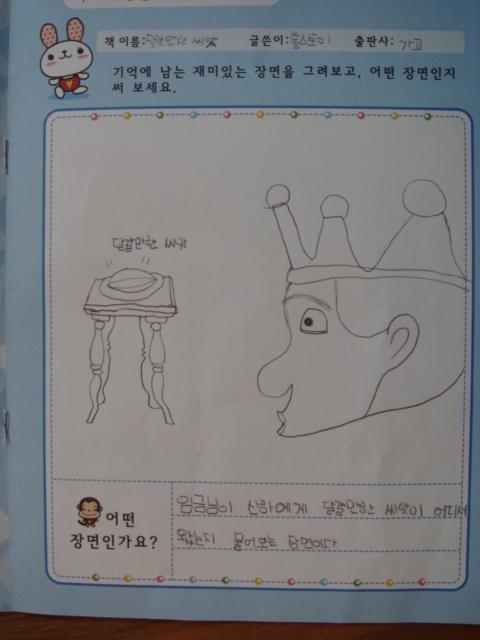 책 이름: 달걀만한 씨앗 글쓴이: 톨스토이 출판사:
기억에 남는 재미있는 장면을 그려보고, 어떤 장면인지
써 보세요.
달걀만한 씨앗
어떤
장면인가요?
임금님이 신하에게 달걀만한 씨앗이 어디서
왔는지 물어보는 장면이다.